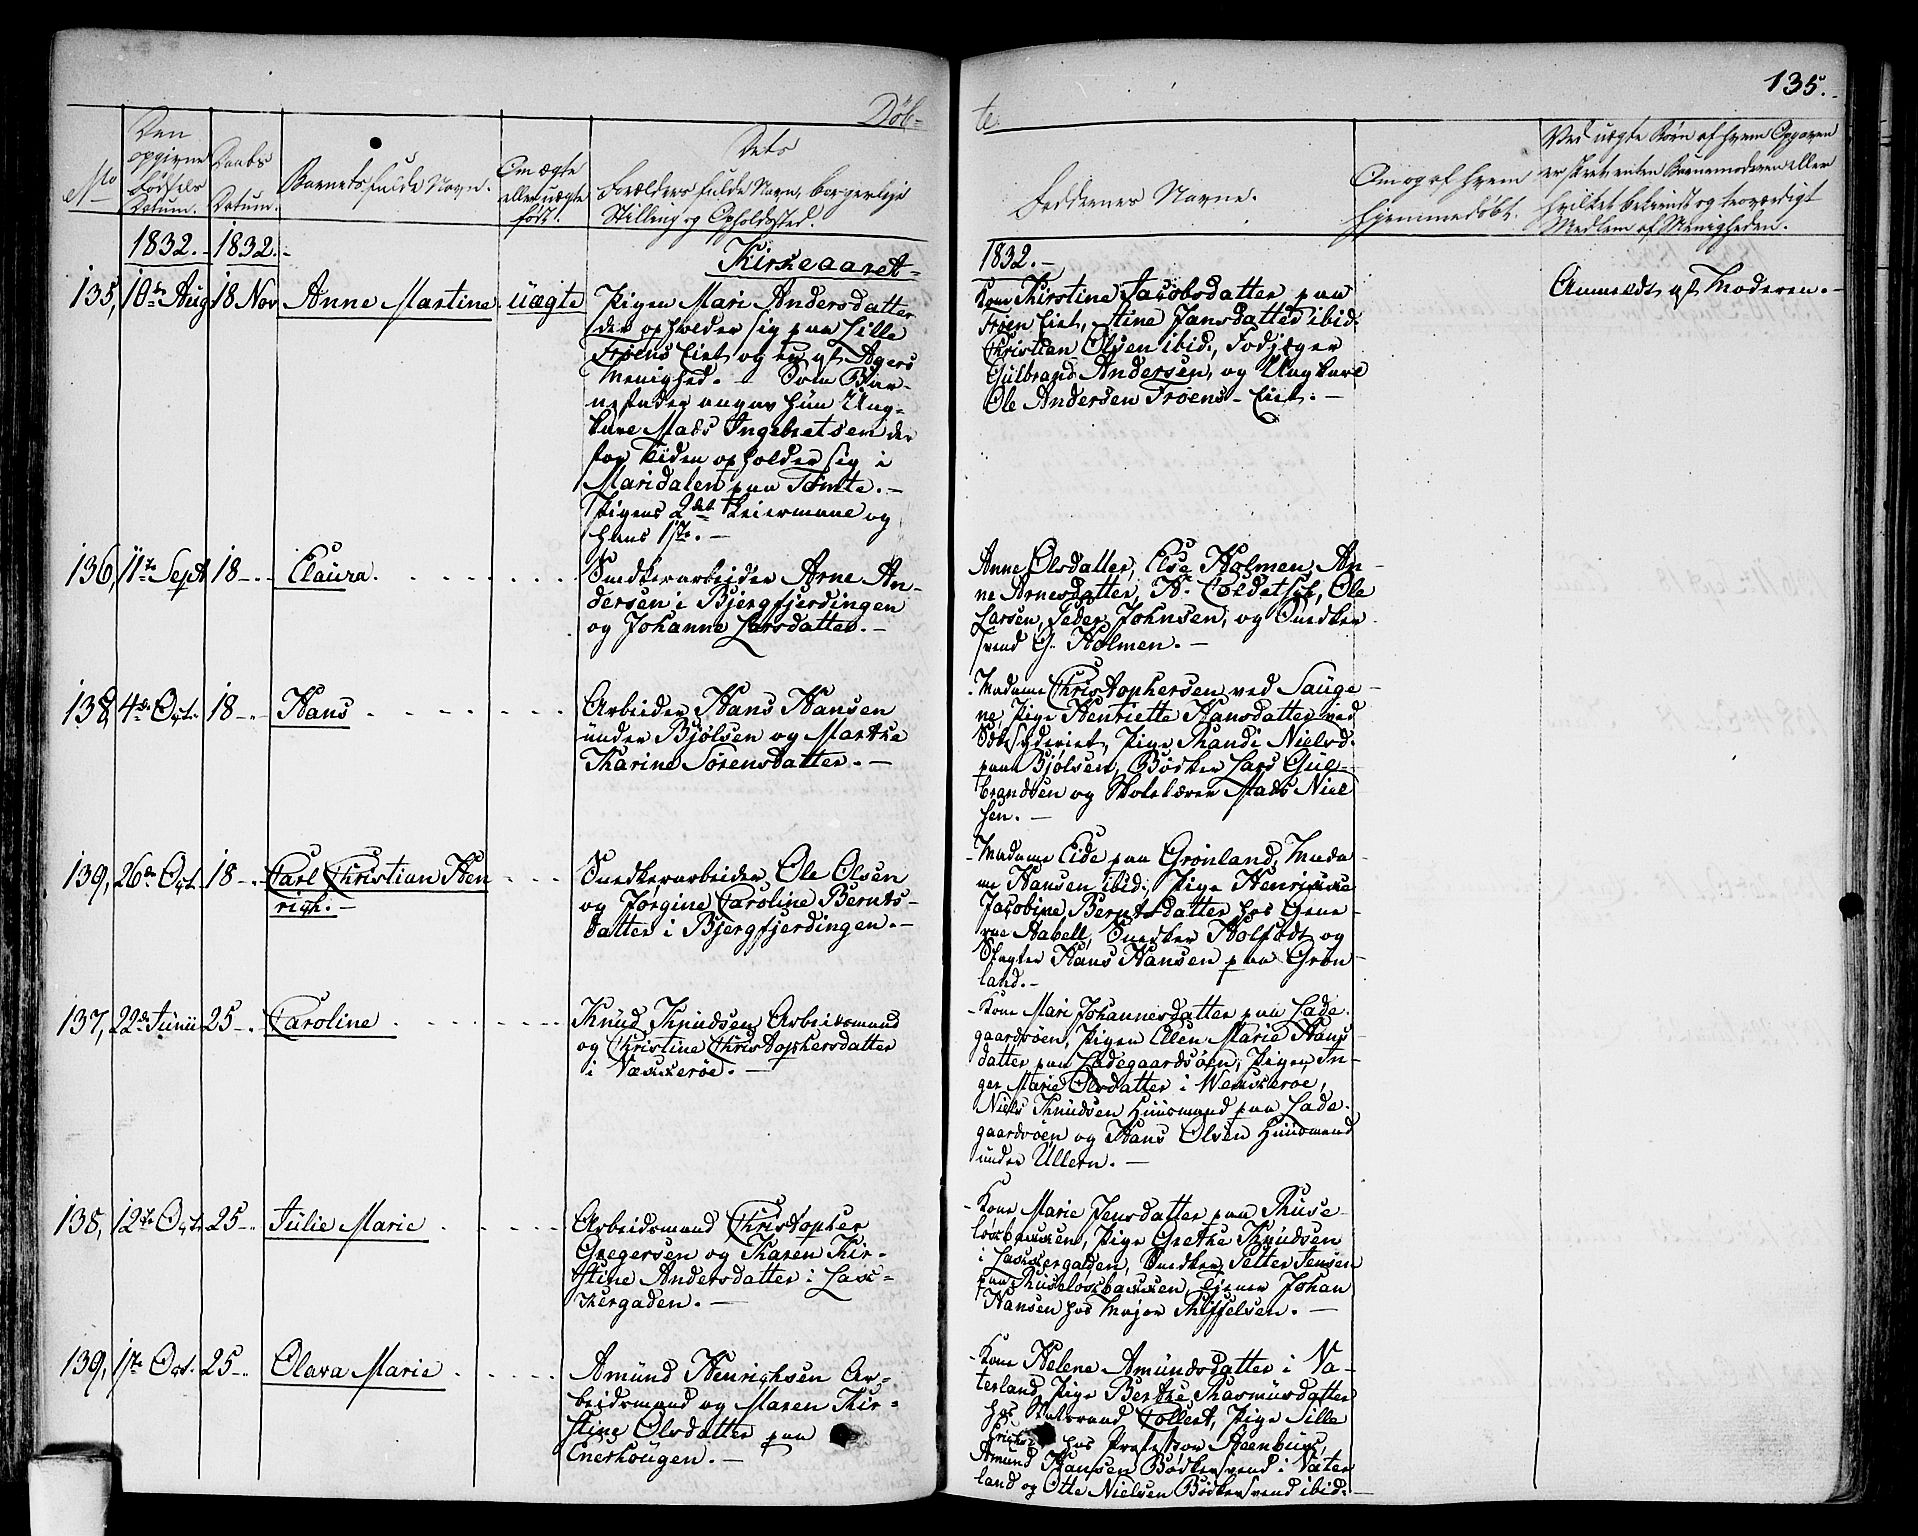 135.
Døb-
te
No
Den
opgivne
Fødsels
Datum.
Daabs
Datum.
Barnets fulde Navn.
Om ægte
eller uægte
født.
Dets
Forældres fulde Navn, borgerlige
Stilling og Opholdssted.
Faddernes Navne.
Om og af hvem
hjemmedøbt.
Ved uægte Børn af hvem Opgaven
er skeet, enten Barnemoderen eller
hvilket bekiendt og troværdigt
Medlem af Menigheden.
1832.
1832.
Kirkeaaret
1832.
135, 10de Aug 18 Nov Anne Martine uægte
Pigen Mari Andersdatter
der opholder sig paa Lille
Frøens Eiet og er af Agers
Menighed. - Som Bar-
nefader angav hun Ung-
karl Mads Ingebretsen der
for Tiden opholder sig i
Maridalen paa Tømte. -
Pigens 2det Leiermaal og
hans 1ste. -
Kone Kirstine Jacobsdatter paa
Frøen Eiet, Stine Jansdatter ibid.
Christian Olsen ibid., Fodjæger
Gulbrand Andersen, og Ungkarl
Ole Andersen Frøens-Eiet. -
Anmeldt af Moderen. -
136, 11te Sept 18 - Claura.
Snedkerarbeider Arne An-
dersen i Bjergfjerdingen
og Johanne Larsdatter. -
Anne Olsdatter, Else Holmen, An-
ne Arnesdatter, Ole
Larsen, Peder Johnsen, og Snedker
svend G. Holmen. -
138, 4de Oct. 18 - Hans
Arbeider Hans Hansen
under Bjølsen og Marthe
Tharine Sørensdatter. -
Madame Christophersen ved Sauge-
ne, Pige Henriette Hansdatter ved
Pige Randi Nielsd.
paa Bjølsen, Bødker Lars Gul-
brandsen og Skolelærer Mads Niel
sen. -
139, 26de Oct. 18 - Carl Christian Hen
rich. -
Snedkerarbeider Ole Olsen
og Jørgine Caroline Bernts-
datter i Bjergfjerdingen. -
Madame Eide paa Grønland, Mada-
me Hansen ibid., Pige Henrikke
Jacobine Berntsdatter hos Gene-
ral Aabell, Snedker Holfødt og
Slagter Hans Hansen paa Grøn-
land. -
137, 22de Junii 25 - Caroline
Knud Knudsen Arbeidsmand
og Christine Christophersdatter
i Vækkerøe. -
Kone Mari Johannesdatter paa Lade-
gaardsøen, Pigen Elen Marie Hans
datter paa Ladegaardsøen, Pigen In-
ger Marie Olsdatter i Wækkerøe,
Niels Knudsen Huusmand paa Lade-
gaardsøen og Hans Olsen Huusmand
under Ullern. -
138, 12te Oct. 25 - Julie Marie
Arbeidsmand Christopher
Gregersen og Karen Kir-
stine Andersdatter i Lak-
kergaden. -
Kone Marie Jensdatter paa Ruse-
løkbakken, Pige Grethe Knudsen
i Lakkergaden, Snedker Petter Jensen
paa Ruseløkbakken, Tjener Johan
Hansen hos Major -
139, 1ste Oct. 25 - Olava Marie
Amund Henrichsen Ar-
beidsmand og Maren Kir-
stine Olsdatter paa
Enerhougen. -
Kone Helene Amundsdatter i Va-
terland, Pige Berthe Rasmusdatter
hos Statsraad Collett, Pige Sille
hos Professor Steenbuck,
Amund Hansen Bødkersvend i Vater
land og Otte Nielsen Bødkersvend ibid. -